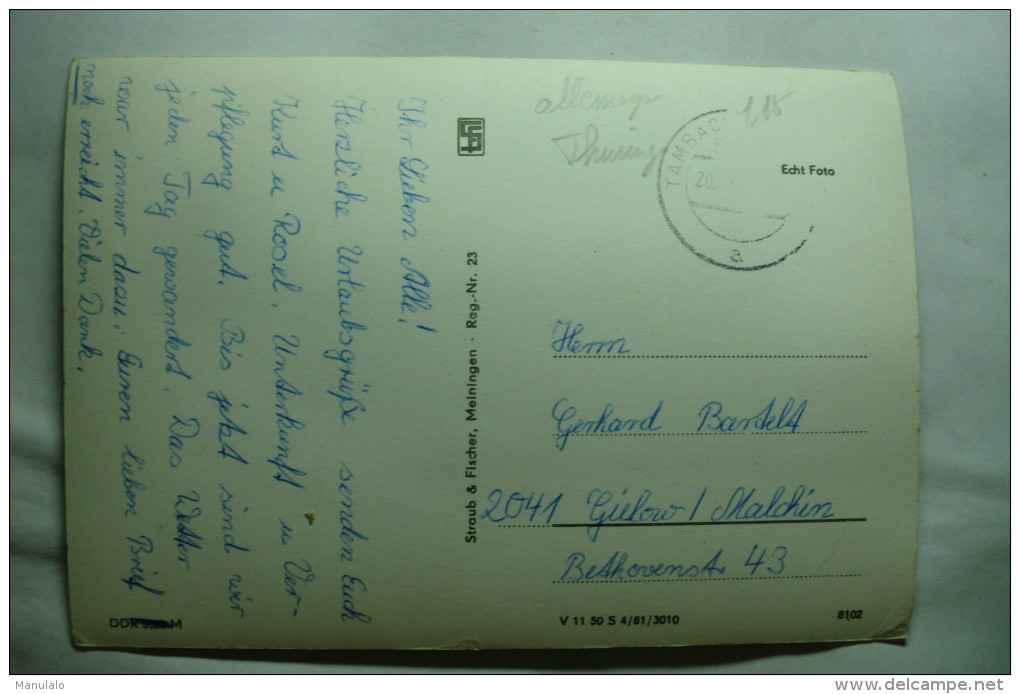 Ihr Lieben Alle!
Herzliche Urlaubsgrüße senden Euch
Kurt u Rosel. Unterkunft u Ver-
pflegung gut. Bis jetzt sind wir
jeden Tag gewandert. Das Wetter
war immer dazu. Euren lieben Brief
noch erreicht. Vielen Dank.
DDR M
Straub & Fischer, Meiningen · Reg.-Nr. 23
allemagne
Thuringe
118
TAMBAC
20.
a
Echt Foto
Herrn
Gerhard Bartelt
2041 Gielow / Malchin
Bethovenstr 43
V 11 50 S 4/81/3010
8102
Manulalo
delcampe.net